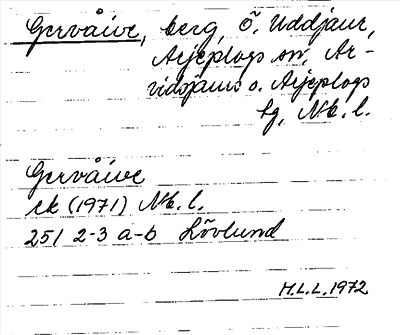 Gervåive, berg, ö. Uddjaur,
Arjeplogs sn, Ar-
vidsjaurs o. Arjeplogs
tg, Nb. l.
Gervåive
ek (1971) Nb. l.
25I 2-3 a-b Lövlund
H.L.L. 1972